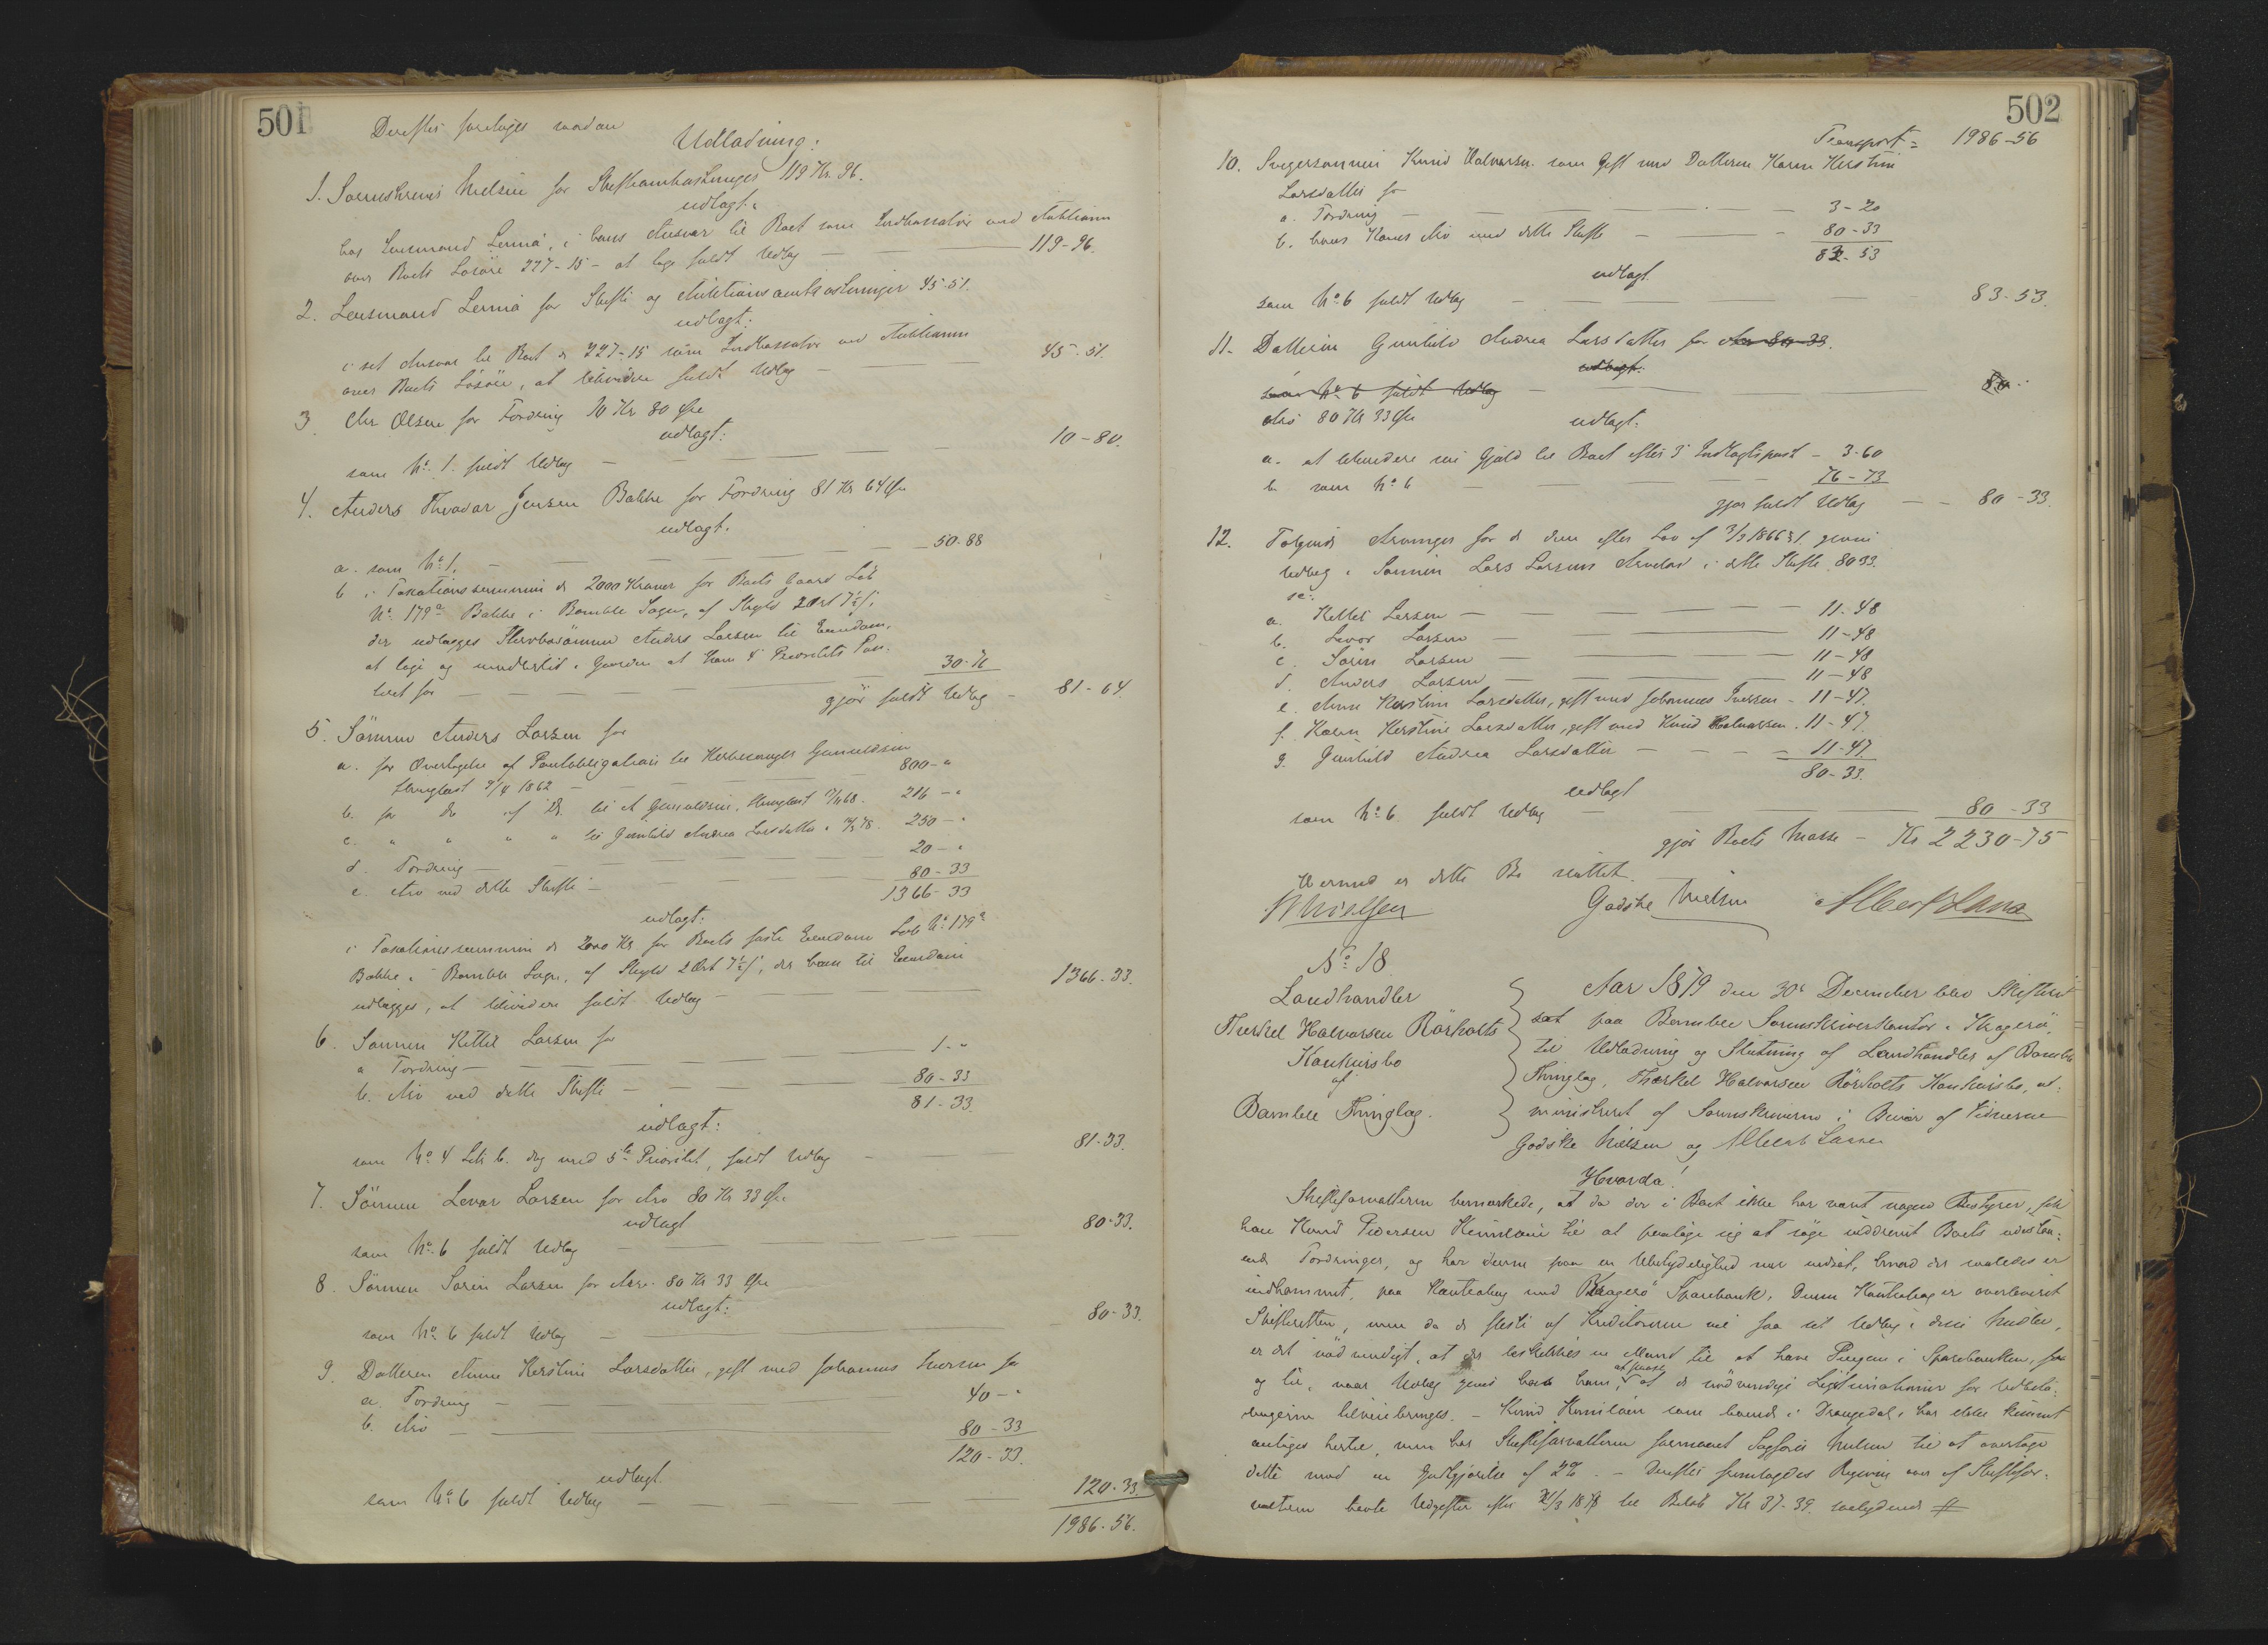 501
Derefter foretoges saadan
Udlodning:
1. Sorenskriver Nielsen for Skifteomkostninger 119 Kr. 96.
udlagt:
hos Lensmand Lennia, i hans Ansvar til Boet som Indkassator ved Auktionen
over Boets Løsøre 227-15 - at tage fuldt Udlæg — 119-96.
2. Lensmand Lennia for Skifte og Auktionsomkostninger 45-51.
udlagt:
i sit Ansvar til Boet de 227-15 som Indkassator ved Auktionen
over Boets Løsøre, at likvidere fuldt Udlæg — 45-51.
3. Olsen for Fordring 10 Kr 80 Øre
udlagt:
som No. 1. fuldt Udlæg — 10-80.
4. Anders Thvadar Jensen Bakke for Fordring 81 Kr 64 Øre
udlagt:
a. som No. 1. — 50-88
b. i Taxationssummen de 2000 Kroner for Boets Gaard Løb
No. 179a Bakke i Bamble Sogn, af Skyld 2 Ort 7½ ß,
der udlægges Stervbosønnen Anders Larsen til Eiendom,
at tage og imidlertid i Gaarden at have 4 Prioritets Pan-
teret for — 30-76
gjør fuldt Udlæg — 81-64.
5. Sønnen Anders Larsen for
a. for Overtagelse af Pantobligation til Gunuldsen
thinglæst 9/4 1862 — 800-"
b. for Do af Do. til A Gunuldsen, thinglæst 68. 216-"
c. " " " " til Gunhild Andrea Larsdatter 78. 250-"
d. Fordring — 20-"
e. Arv ved dette Skifte — 80-33
1366-33
udlagt:
i Taxationssummen de 2000 Kr for Boets faste Eiendom Løb No. 179a
Bakke i Bamble Sogn, af Skyld 2 Ort 7½ ß, der ham til Eiendom
udlægges, at likvidere fuldt Udlæg — 1366-33.
6. Sønnen Kittil Larsen for
a Fordring — 1-"
b. Arv ved dette Skifte — 80-33
81-33.
udlagt:
som No. 4 Litr b. dog med 5te Prioritet, fuldt Udlæg — 81-33.
7. Sønnen Levor Larsen for Arv 80 Kr 33 Øre
udlagt
som No. 6 fuldt Udlæg — 80-33.
8. Sønnen Søren Larsen for Arv 80 Kr 33 Øre
udlagt:
som No. 6 fuldt Udlæg — 80-33.
9. Datteren Anne Kerstine Larsdatter, gift med Johannes Iversen for
a. Fordring — 40-"
b. Arv — 80-33
120-33.
udlagt
som No. 6 fuldt Udlæg — 120-33
1986-56.
502
Transport = 1986-56
10. Svigersønnen Knud Halvorsen som gift med Datteren Karen Kerstine
Larsdatter for
a. Fordring — 3-20
b. hans Kones Arv ved dette Skifte — 80-33
83-53
udlagt
som No. 6 fuldt Udlæg — 83-53.
11. Datteren Gunhild Andrea Larsdatter for Arv 80-33.
udlagt:
som No. 6 fuldt Udlæg — 80-
Arv 80 Kr 33 Øre
udlagt:
a. at likvidere sin Gjæld til Boet efter 3 Indtægtspost - 3-60
b. som No. 6 — 76-73
gjør fuldt Udlæg — 80-33.
12. Følgende Arvinger for de dem efter Lov af 3/3 1866 § 1. givne
Udlæg i Sønnen Lars Larsens Arvelod i dette Skifte 80-33.
sc:
a. Kittil Larsen — 11-48
b. Levor Larsen — 11-48
c. Søren Larsen — 11-48
d. Anders Larsen — 11-48
e. Anne Kerstine Larsdatter, gift med Johannes Iversen - 11-47.
f. Karen Kerstine Larsdatter, gift med Knud Halvorsen. 11-47.
g. Gunhild Andrea Larsdatter — 11-47
80-33.
udlagt
som No. 6 fuldt Udlæg — 80-33
gjør Boets Masse - Kr 2230-75
Hermed er dette Bo sluttet.
Godske Nielsen Albert Lassen
No. 18
Landhandler
Therkel Halvorsen Rørholts
Konkursbo
af
Bamble Thinglag.
Aar 1879 den 30te December blev Skifteret
sat paa Bamble Sorenskriverkontor i Kragerø,
til Udlodning og Slutning af Landhandler af Bamble
Thinglag, Therkel Halvorsen Rørholts Konkursbo, ad-
ministreret af Sorenskriveren i Overvær af Vidnerne
Godske Nielsen og Albert Lassen
Hvorda!
Skifteforvalteren bemærkede, at da der i Boet ikke har været nogen Bestyrer, fik
han Knud Pedersen Humlein til at paatage sig at søge inddrevet Boets udestaa-
ende Fordringer, og har denne paa en Ubetydelighed nær indsat, hvad der saaledes er
indkommet, paa Kontrabog med Kragerø Sparebank. Denne Kontrabog er overleveret
Skifteretten, men da de fleste af Kreditorerne vil faa sit Udlæg i disse Midler,
er det nødvendigt, at der beskikkes en Mand til at hæve Pengene i Sparebanken, for
og til, naar Udlæg gives hos ham, at paase at de nødvendige Legitimationer for Udbeta-
lingerne tilveiebringes. - Knud Humlein som boende i Drangedal, har ikke kunnet
antages hertil, men har Skifteforvalteren formaaet Sagfører Nielsen til at overtage
dette mod en Godtgjørelse af 2 % - Derefter fremlagdes Regning over af Skiftefor-
valteren havte Udgifter efter 21/3 1878 til Beløb Kr 37-39. saalydende #